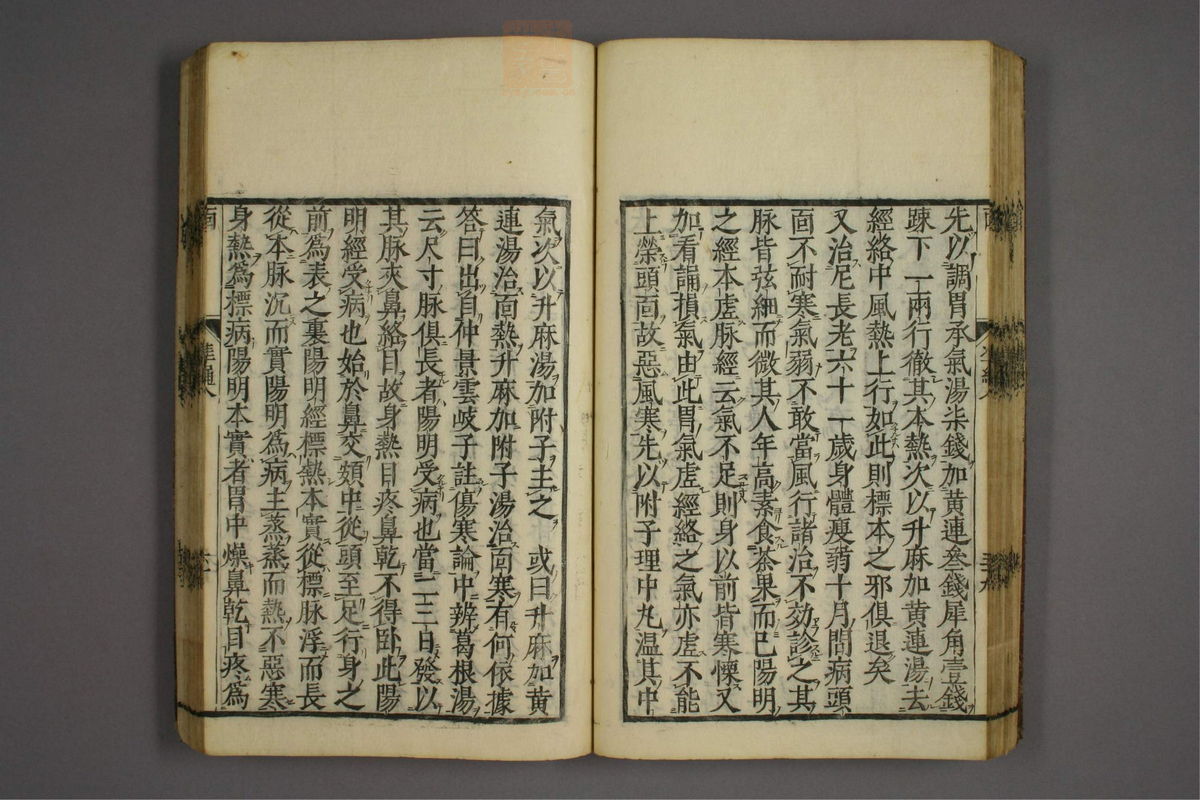 先以調胃承氣湯柒錢加黄連叄錢犀角壹錢
踈下一二兩行徹其本熱次以升麻加黄連湯去
經絡中風熱上行如此則標本之邪俱退矣
又治尼長老六十一歲身體瘦弱十月間病頭
面不耐寒氣弱不敢當風行諸治不効診之其
脉皆弦細而微其人年高素食茶果而已陽明
之經本虛脉經云氣不足則身以前皆寒慄又
加看誦損氣由此胃氣虛經絡之氣亦虛不能
上榮頭面故惡風寒先以附子理中丸温其中
氣次以升麻湯加附子主之 或曰升麻加黄
連湯治面熱升麻加附子湯治面寒有何依據
答曰出自仲景雲岐子註傷寒論中辨葛根湯
云尺寸脉俱長者陽明受病也當二三日發以
其脉夾鼻絡目故身熱目疼鼻乾不得卧此陽
明經受病也始於鼻交頞中從頭至足行身之
前爲表之裏陽明經標熱本實從標脉浮而長
從本脉沉而實陽明爲病主蒸蒸而熱不惡寒
身熱爲標病陽明本實者胃中燥鼻乾目疼爲